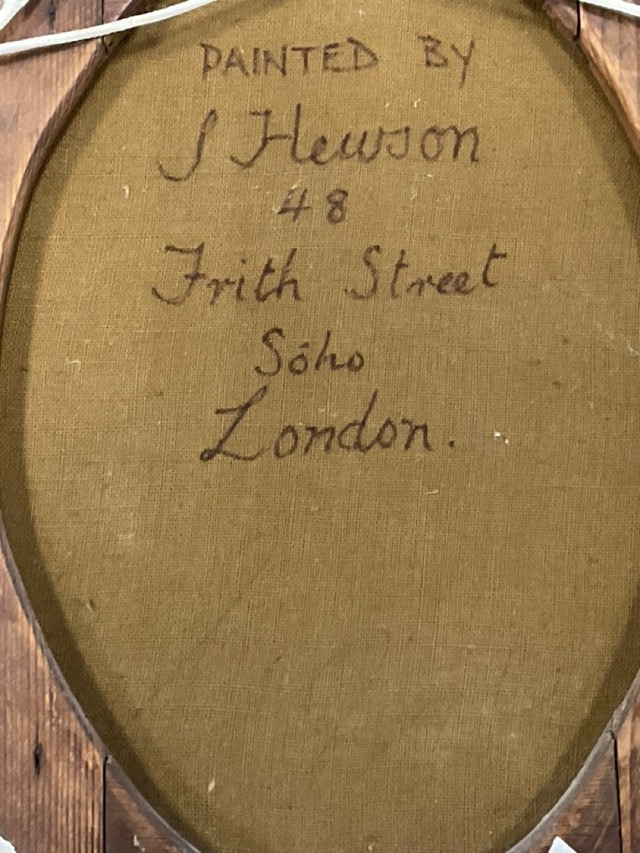 PAINTED BY
J Hewson
48
Frith Street
Soho
London.